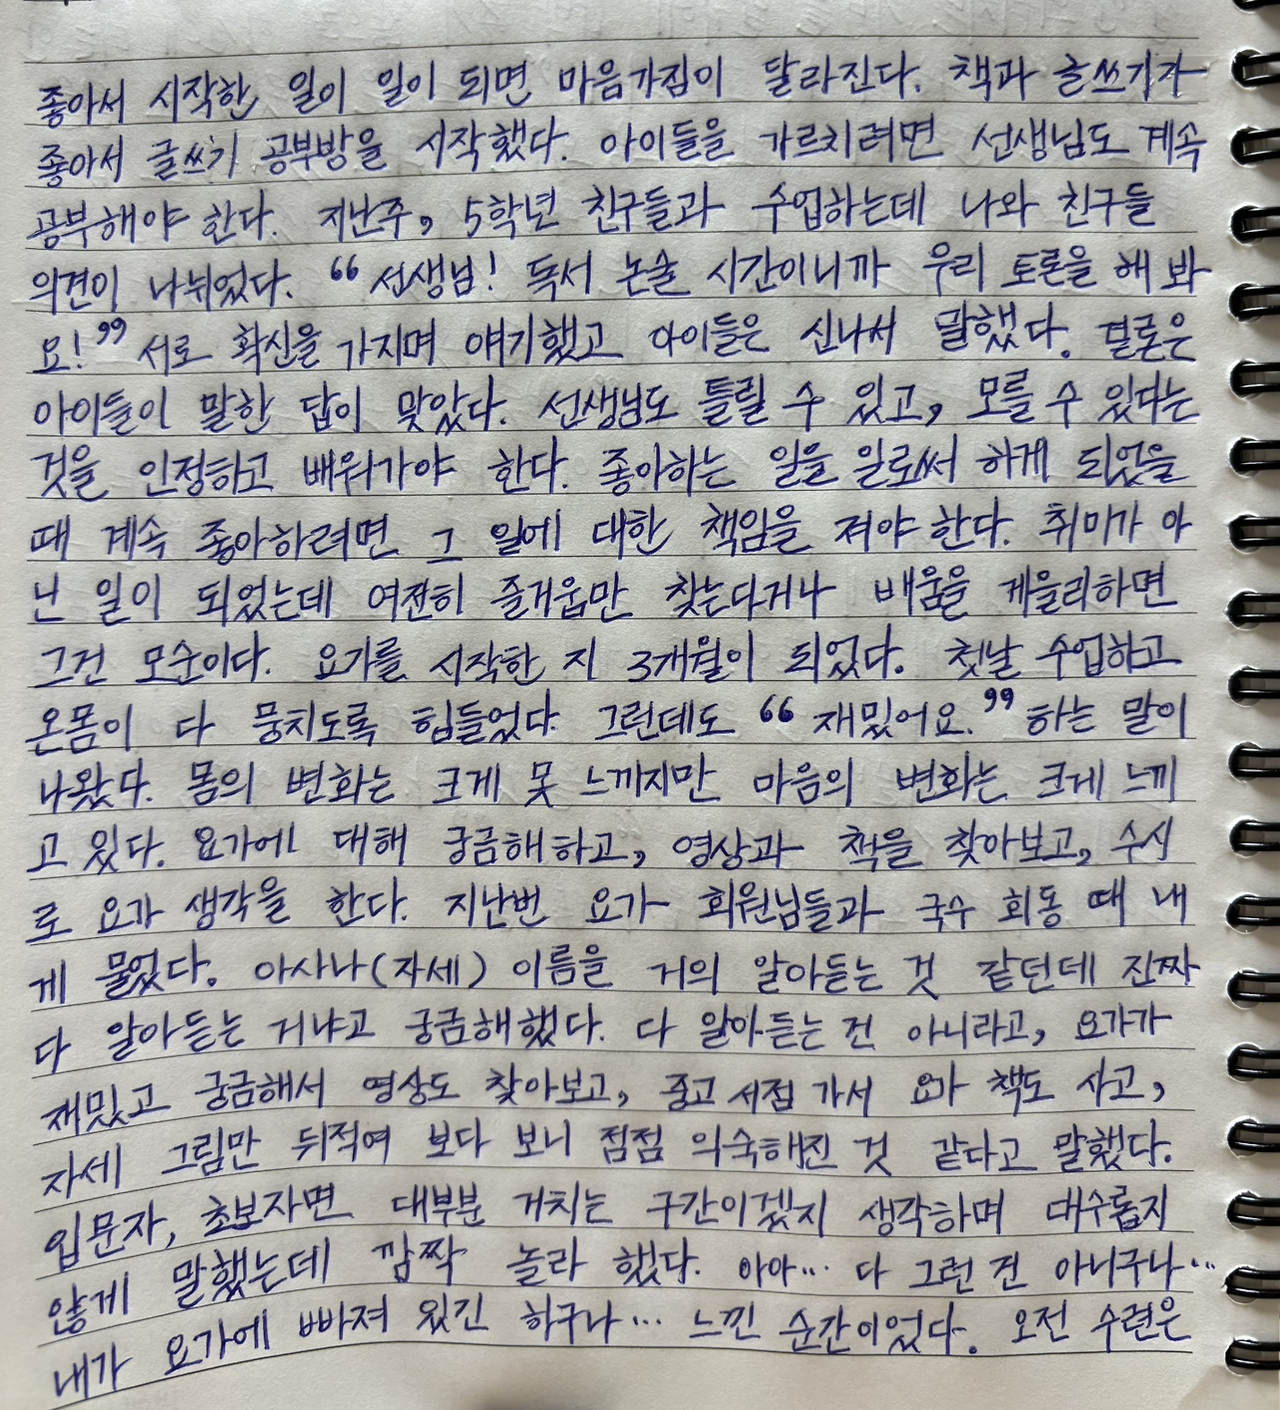 좋아서 시작한 일이 일이 되면 마음가짐이 달라진다. 책과 글쓰기가
좋아서 글쓰기 공부방을 시작했다. 아이들을 가르치려면 선생님도 계속
공부해야 한다. 지난주, 5학년 친구들과 수업하는데 나와 친구들
의견이 나뉘었다. “선생님! 독서 논술 시간이니까 우리 토론을 해 봐
요!” 서로 확신을 가지며 얘기했고 아이들은 신나서 말했다. 결론은
아이들이 말한 답이 맞았다. 선생님도 틀릴 수 있고, 모를 수 있다는
것을 인정하고 배워가야 한다. 좋아하는 일을 일로써 하게 되었을
때 계속 좋아하려면 그 일에 대한 책임을 져야 한다. 취미가 아
닌 일이 되었는데 여전히 즐거움만 찾는다거나 배움을 게을리하면
그건 모순이다. 요가를 시작한 지 3개월이 되었다. 첫날 수업하고
온몸이 다 뭉치도록 힘들었다. 그런데도 “재밌어요.” 하는 말이
나왔다. 몸의 변화는 크게 못 느끼지만 마음의 변화는 크게 느끼
고 있다. 요가에 대해 궁금해하고, 영상과 책을 찾아보고, 수시
로 요가 생각을 한다. 지난번 요가 회원님들과 국수 회동 때 내
게 물었다. 아사나(자세) 이름을 거의 알아듣는 것 같던데 진짜
다 알아듣는 거냐고 궁금해했다. 다 알아듣는 건 아니라고, 요가가
재밌고 궁금해서 영상도 찾아보고, 중고 서점 가서 요가 책도 사고,
자세 그림만 뒤적여 보다 보니 점점 익숙해진 것 같다고 말했다.
입문자, 초보자면 대부분 거치는 구간이겠지 생각하며 대수롭지
않게 말했는데 깜짝 놀라 했다. 아아… 다 그런 건 아니구나…
내가 요가에 빠져 있긴 하구나… 느낀 순간이었다. 오전 수련은